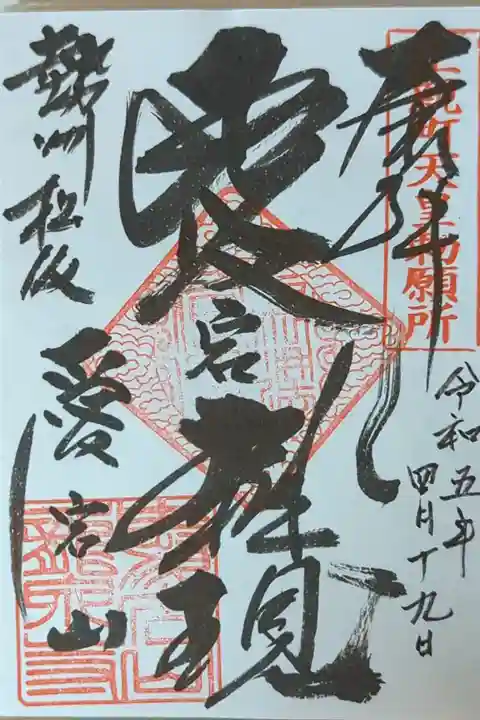 正親町天皇勅願所
奉拝
令和五年
四月十九日
愛宕権現
勢州松阪
愛宕山